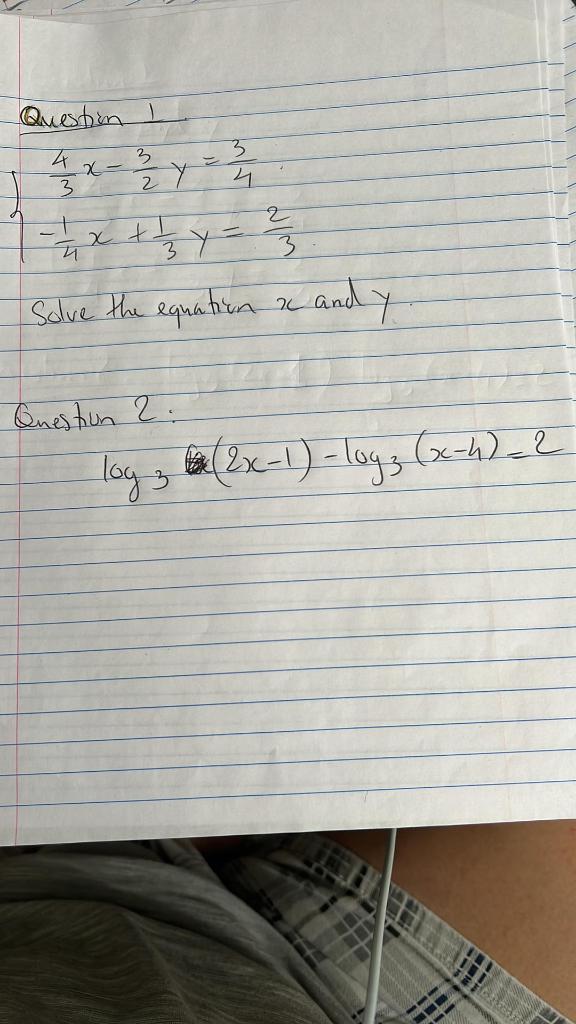 Question 1
4/3 x - 3/2 y = 3/4.
-1/4 x + 1/3 y = 2/3.
Solve the equation x and y.
Question 2:
log₃ (2x-1) - log₃ (x-4) = 2